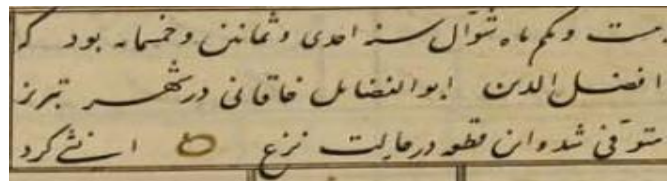 بیست و یکم ماه شوّال سنه احدی و ثمانین و خمسمایه بود که
افضل الدین ابوالفضایل خاقانی در شهر تبریز
متوفّی شد و این قطعه در حالت نزع انشا کرد